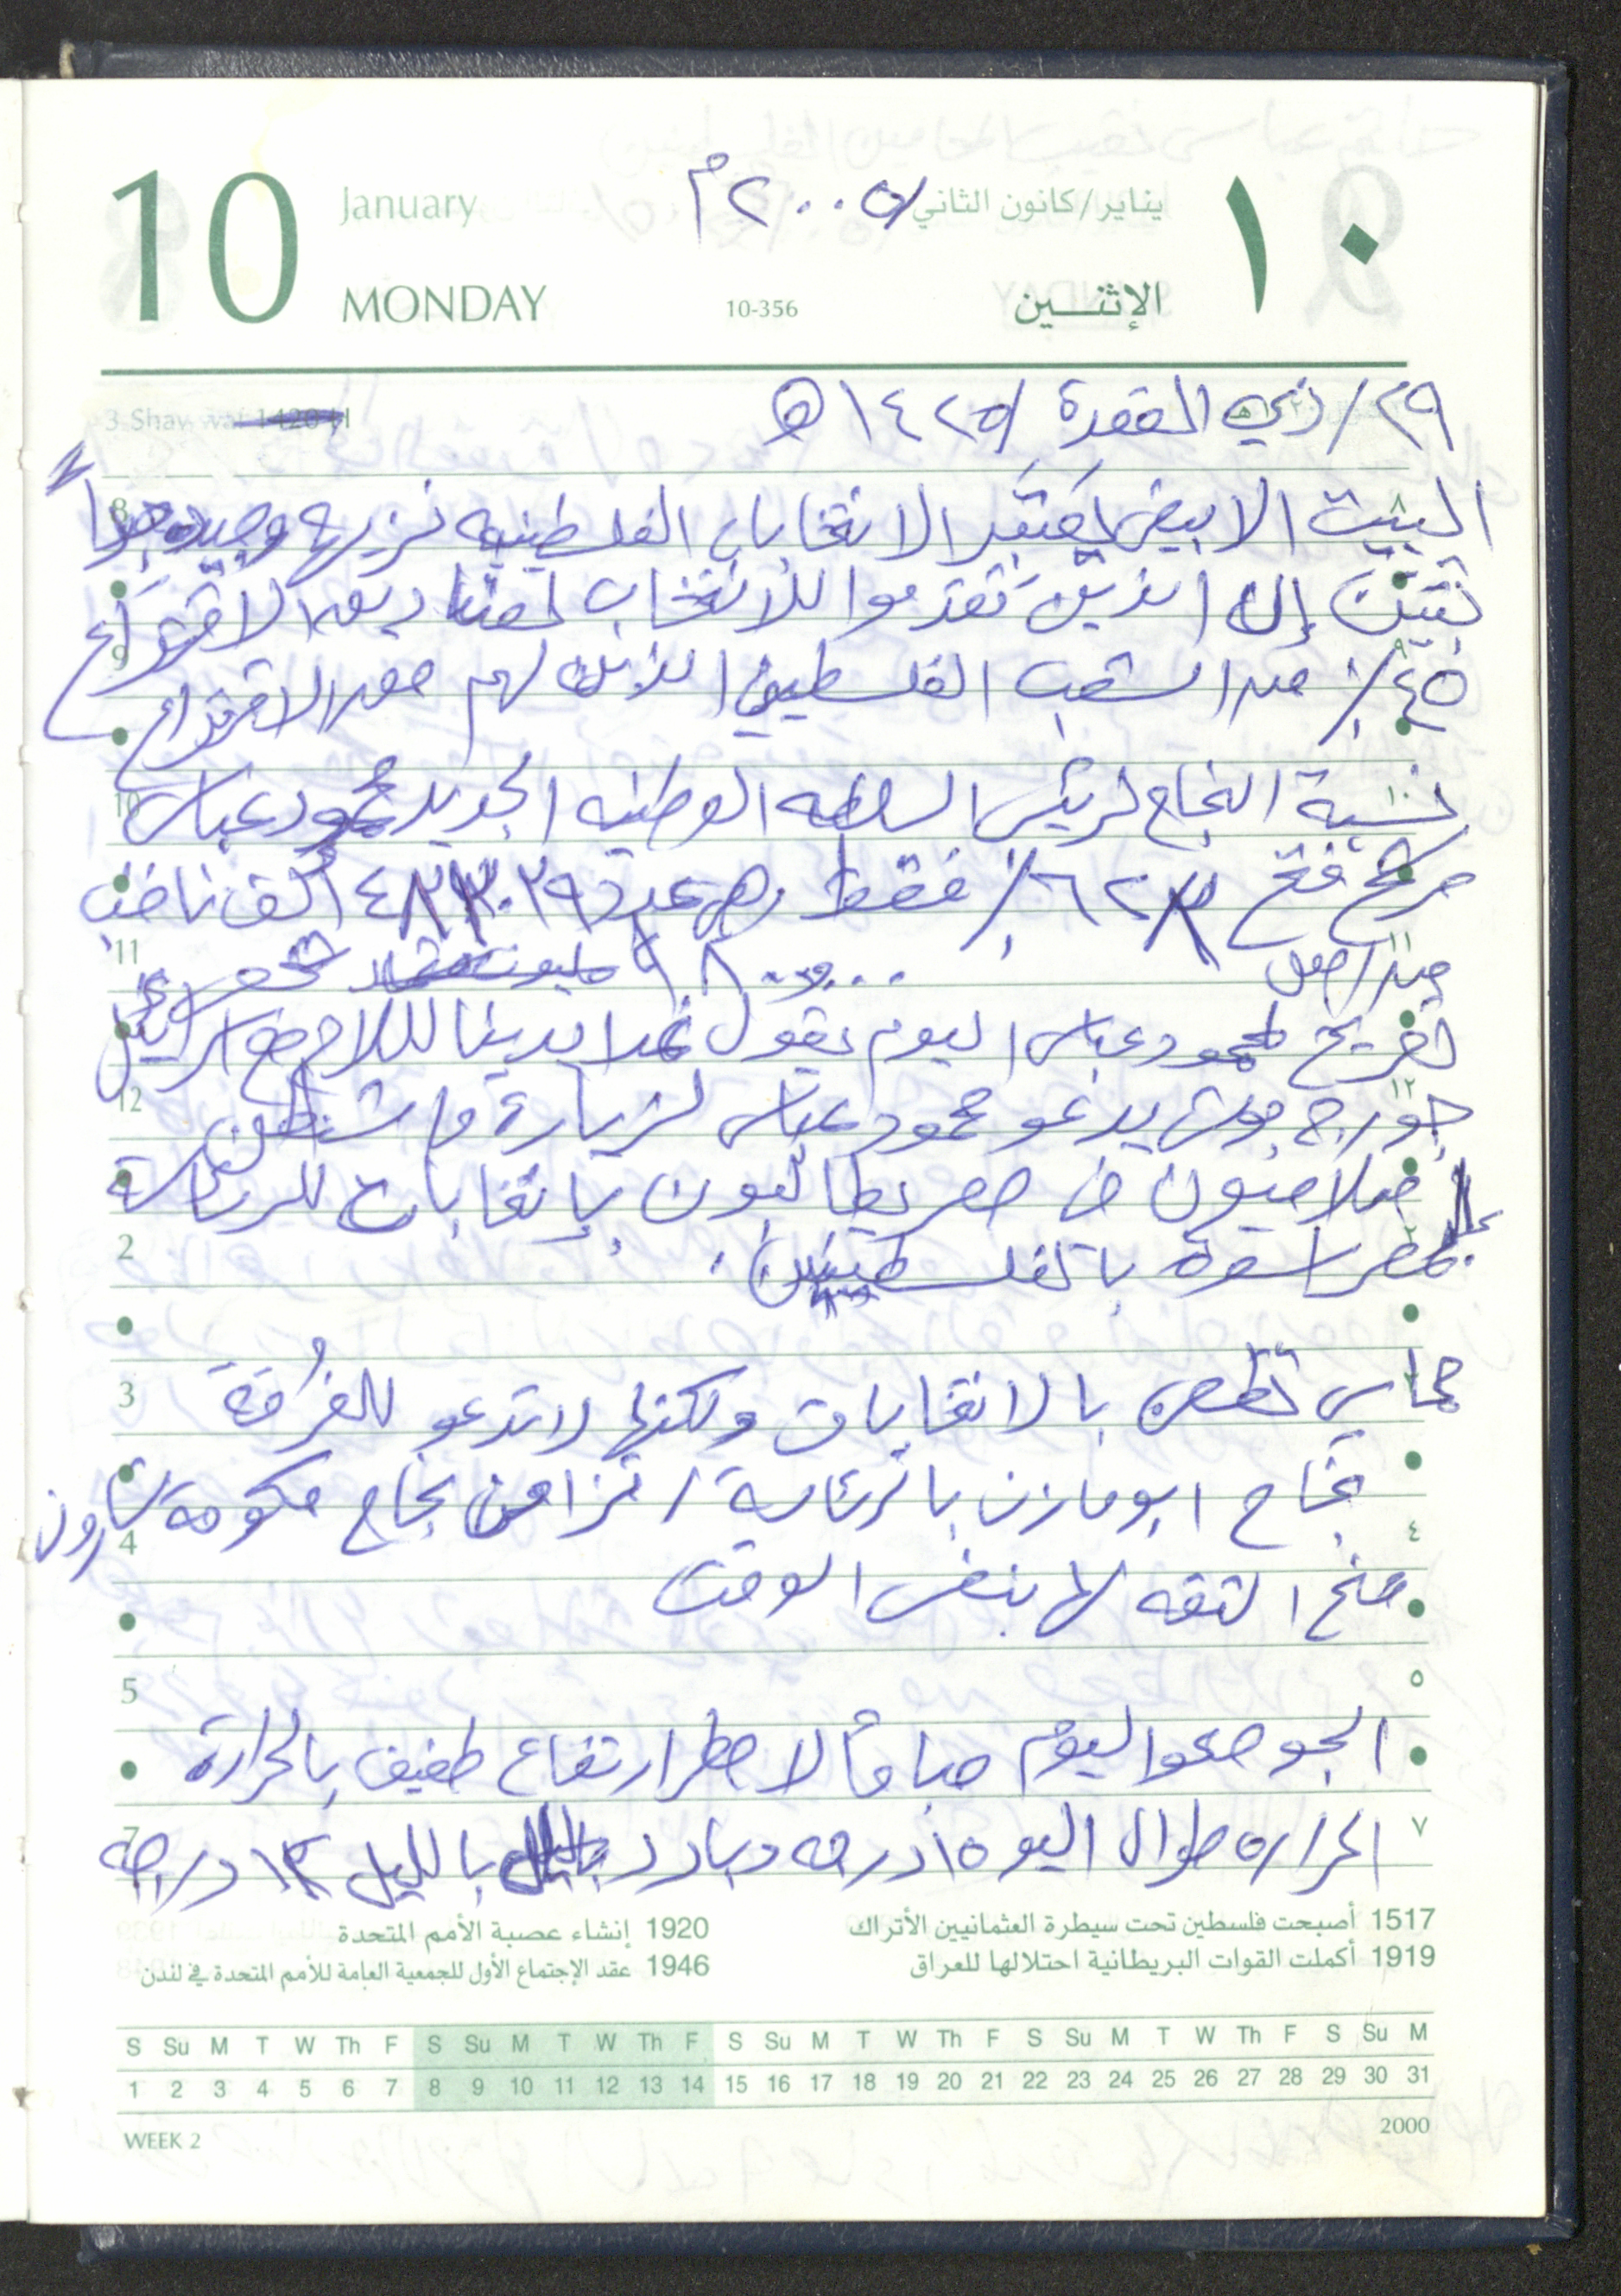 10 January يناير/كانون الثاني /٢٠٠٥م ١٠
MONDAY 10-356 الإثنـــين
3 Shawwal 1420 H ٢٩/ذي القعدة /١٤٢٥ه
8 البيت الابيض يعتبر الانتخابات الفلسطينيه نزيهه وجيده جداً ٨
تبين إن الذين تقدموا للانتخاب لصناديق الاقتراع
9 ٤٥٪ من الشعب الفلسطيني الذين لهم حق الاقتراع ٩
10 نسبة النجاح لرئيس السلطه الوطنيه الجديد محمود عباس ١٠
مرشح فتح ٪ فقط وهي عدد الف ناخب
11 من اصل ١١
تصريح لمحمود عباس اليوم يقول غدا يدينا للسلام مع اسرائيل
12 جورج بوش يدعو محمود عباس لزيارة واشنطن ١٢
اسلاميون في مصر يطالبون بإنتخابات للرئاسة
2 بمصر اسوة بالفلسطينين. ٢
3 حماس تطعن بالانتخابات ولكنها لا تدعو للفُرقة
نجاح ابو مازن بالرئاسة / تزامن نجاح حكومة شارون
4 منح الثقه لها بنفس الوقت ٤
5 ٥
الجو صحو اليوم صباحاً لا مطر ارتفاع طفيف بالحرارة
7 الحراره طوال اليو ١٥ درجه وبارد بالليل ١٢ درجه ٧
1517 أصبحت فلسطين تحت سيطرة العثمانيين الأتراك 1920 إنشاء عصبة الأمم المتحدة
1919 أكملت القوات البريطانية احتلالها للعراق 1946 عقد الإجتماع الأول للجمعية العامة للأمم المتحدة في لندن
S Su M T W Th F S Su M T W Th F S Su M T W Th F S Su M T W Th F S Su M
1 2 3 4 5 6 7 8 9 10 11 12 13 14 15 16 17 18 19 20 21 22 23 24 25 26 27 28 29 30 31
WEEK 2 2000